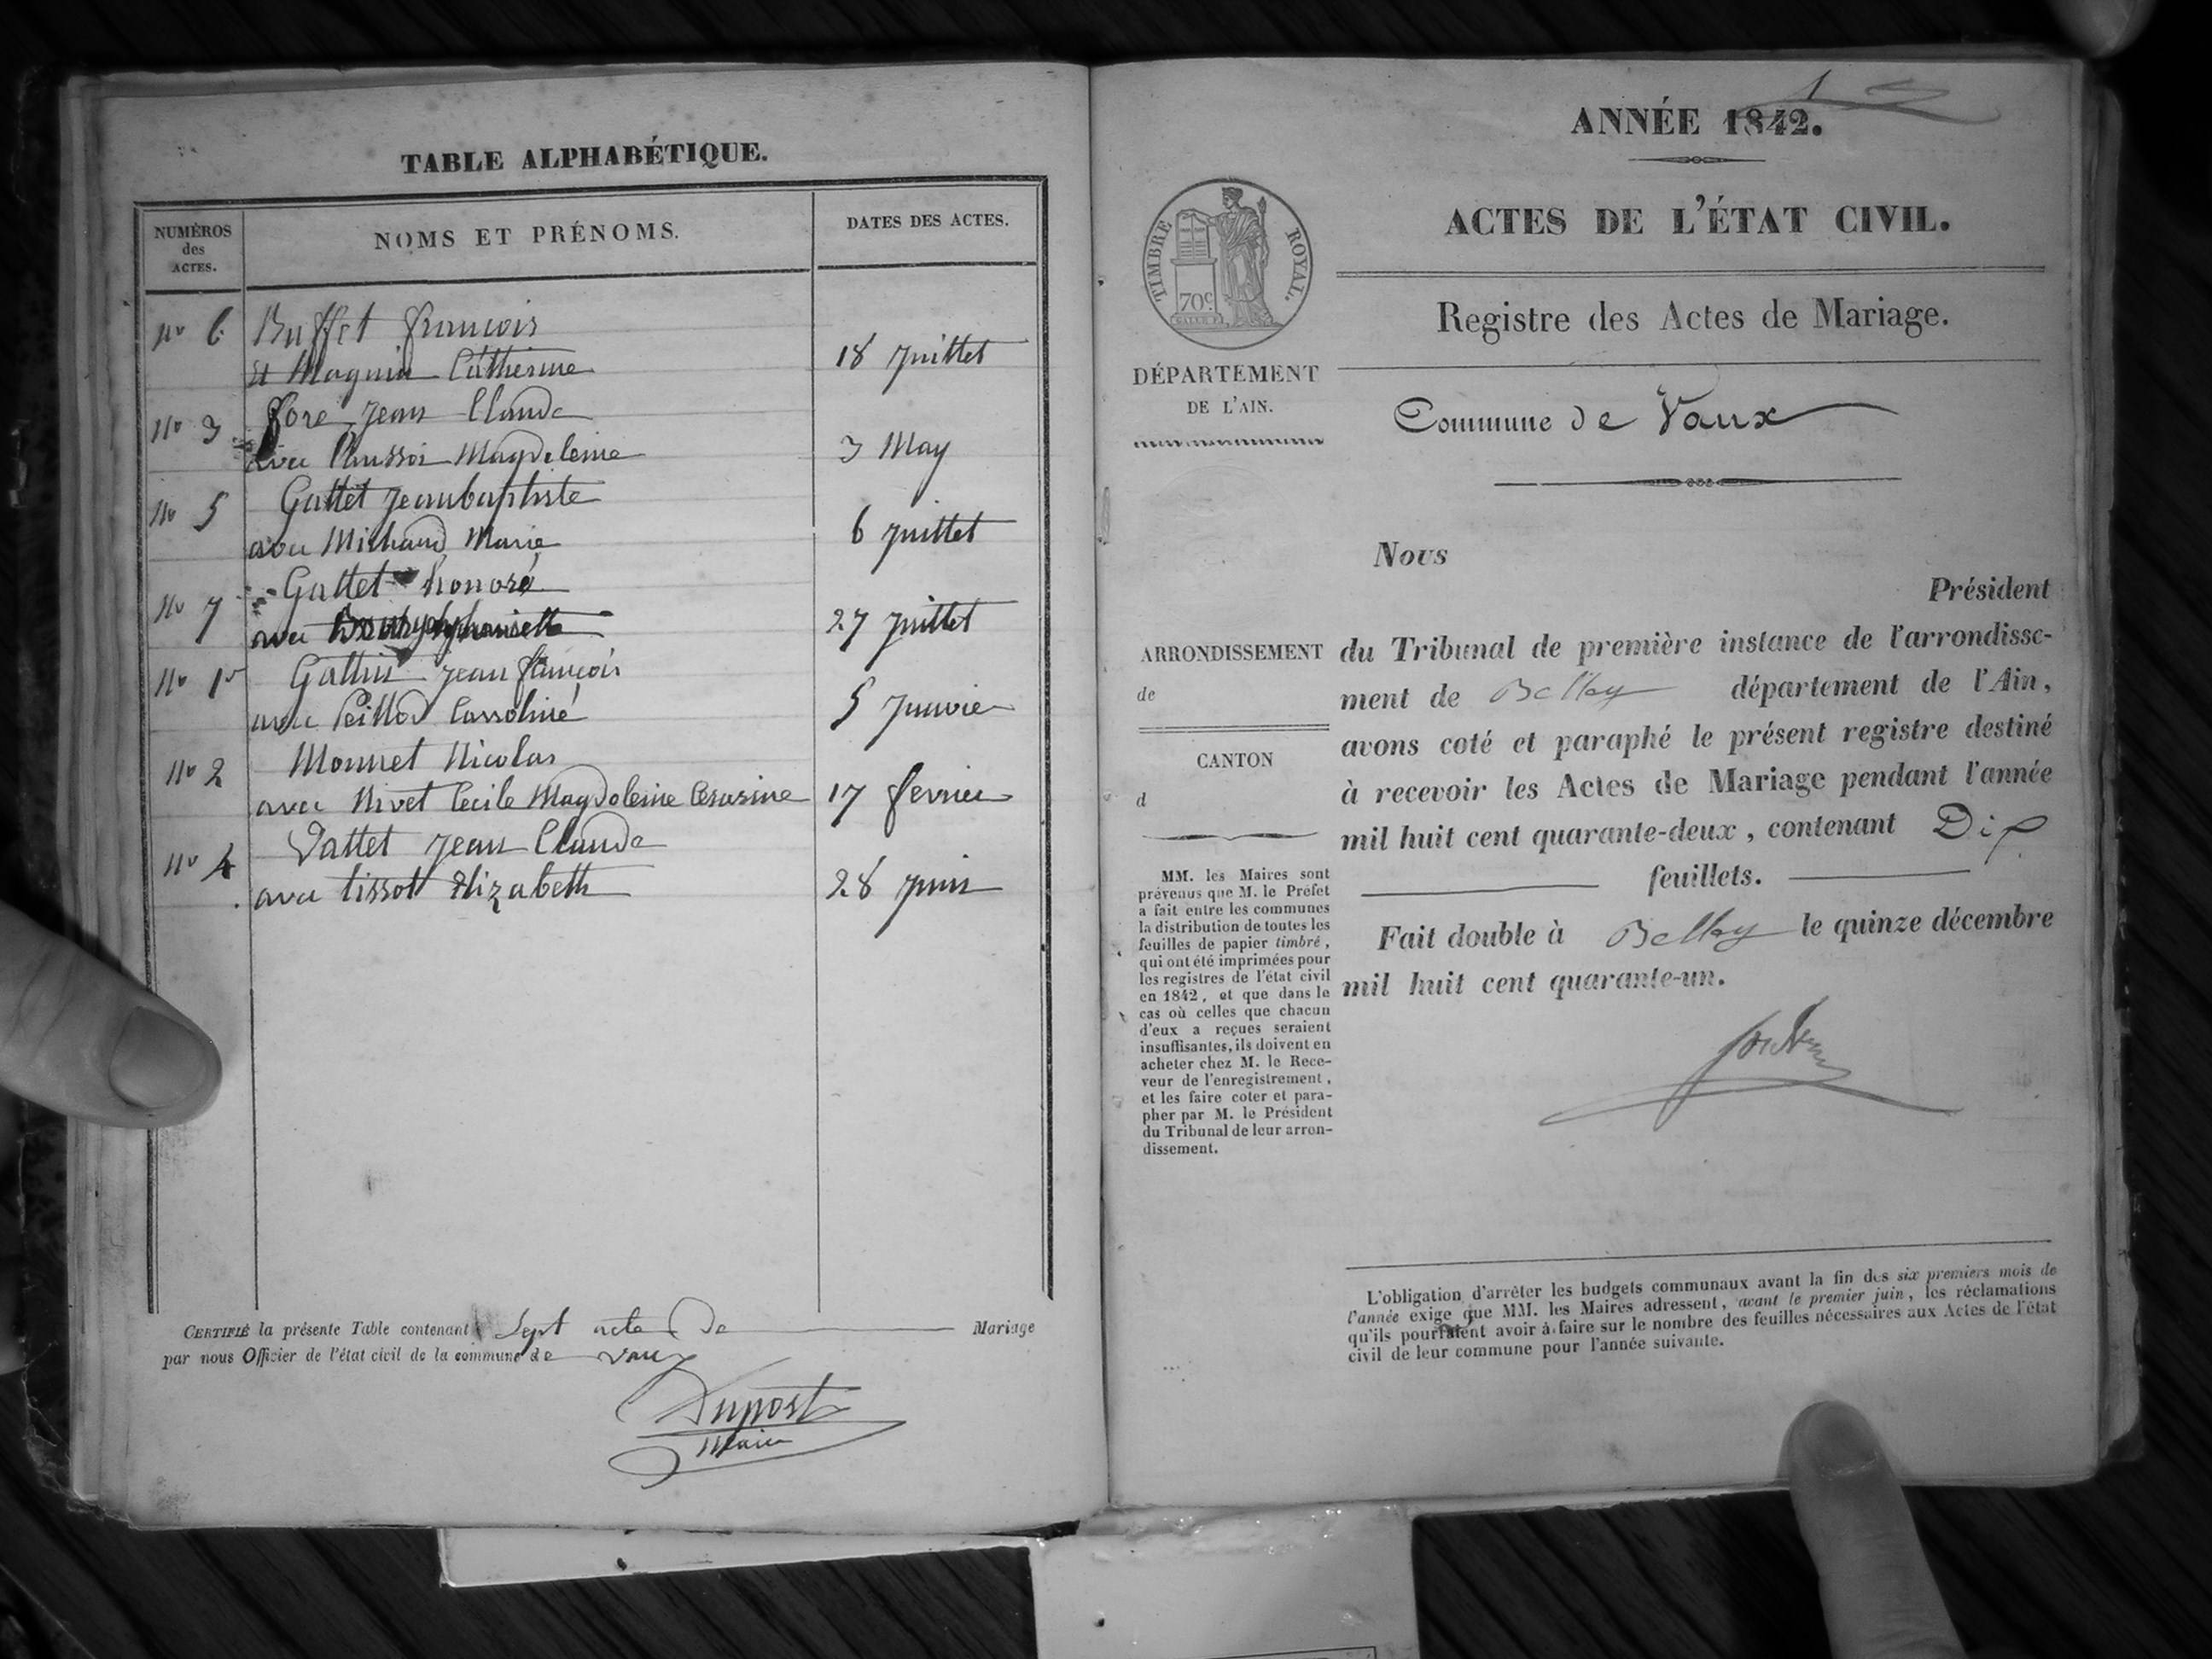 TABLE ALPHABÉTIQUE.
NUMÉROS
des
ACTES.
NOMS ET PRÉNOMS.
DATES DES ACTES.
no 6 Buffet françois
et Magnin Catherine 18 juillet
no 3 fore jean Claude
avec Magdeleine 3 May
no 5 Gattet jeanbaptiste
avec Michaud Marie 6 juillet
no 7 Gattet honoré
avec 27 juillet
no 1r jean françois
avec Peillod Carroliné 5 Janvier
no 2 Monnet Nicolas
avec Nivet Cecile Magdoleine 17 fevrier
no 4 Vattet jean Claude
avec tissot Elizabeth 28 juin
CERTIFIÉ la présente Table contenant Sept acte de Mariage
par nous Officier de l'état civil de la commune de vaux
Dupost
Maire
ANNÉE 1842.
ACTES DE L'ÉTAT CIVIL.
TIMBRE ROYAL.
70c
Registre des Actes de Mariage.
DÉPARTEMENT
DE L'AIN.
Commune de Vaux
Nous
Président
ARRONDISSEMENT
de
CANTON
d
du Tribunal de première instance de l'arrondisse-
ment de Belley département de l'Ain,
avons coté et paraphé le présent registre destiné
à recevoir les Actes de Mariage pendant l'année
mil huit cent quarante-deux, contenant Dix
feuillets.
Fait double à Belley le quinze décembre
mil huit cent quarante-un.
MM. les Maires sont
prévenus que M. le Préfet
a fait entre les communes
la distribution de toutes les
feuilles de papier timbré,
qui ont été imprimées pour
les registres de l'état civil
en 1842, et que dans le
cas où celles que chacun
d'eux a reçues seraient
insuffisantes, ils doivent en
acheter chez M. le Rece-
veur de l'enregistrement,
et les faire coter et para-
pher par M. le Président
du Tribunal de leur arron-
dissement.
L'obligation d'arrêter les budgets communaux avant la fin des six premiers mois de
l'année exige que MM. les Maires adressent, avant le premier juin, les réclamations
qu'ils pourraient avoir à faire sur le nombre des feuilles nécessaires aux Actes de l'état
civil de leur commune pour l'année suivante.